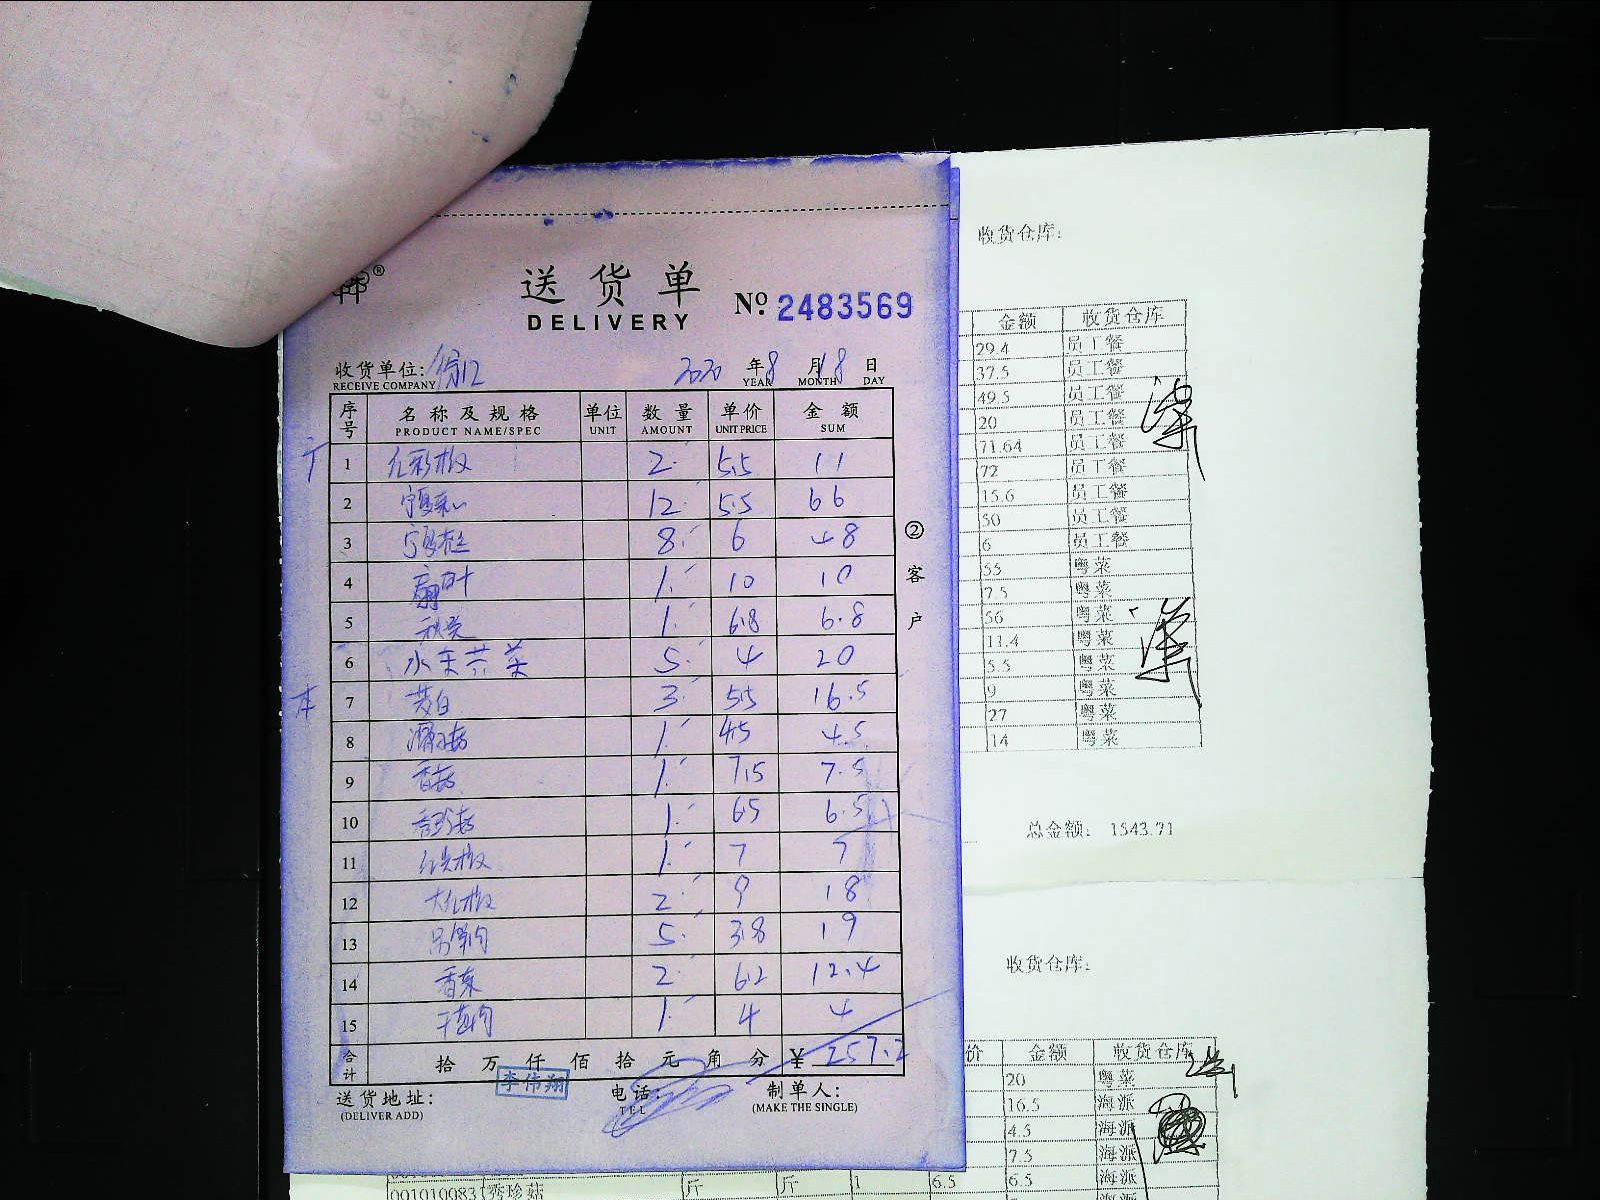 送货单
DELIVERY
No. 2483569
收货单位:
RECEIVE COMPANY
2020 年 8 月 18 日
YEAR MONTH DAY
序号 名称及规格 单位 数量 单价 金额
PRODUCT NAME/SPEC UNIT AMOUNT UNIT PRICE SUM
1 2 5.5 11
2 12 5.5 66
3 8 6 48
4 1 10 10
5 秋葵 1 6.8 6.8
6 水东芥菜 5 4 20
本
7 茭白 3 5.5 16.5
8 1 4.5 4.5
9 香菇 1 7.5 7.5
10 1 6.5 6.5
11 1 7 7
12 2 9 18
13 5 3.8 19
14 香菜 2 6.2 12.4
15 1 4 4
合计 拾 万 仟 佰 拾 元 角 分 ¥ 257.2
李伟翔
送货地址: 电话: 制单人:
(DELIVER ADD) TEL (MAKE THE SINGLE)
②客户
收货仓库:
金额 收货仓库
29.4 员工餐
37.5 员工餐
49.5 员工餐
20 员工餐
71.64 员工餐
72 员工餐
15.6 员工餐
50 员工餐
6 员工餐
55 粤菜
7.5 粤菜
56 粤菜
11.4 粤菜
5.5 粤菜
9 粤菜
27 粤菜
14 粤菜
总金额: 1543.71
收货仓库:
价 金额 收货仓库
20 粤菜
16.5 海派
4.5 海派
7.5 海派
001010083 秀珍菇 斤 斤 1 6.5 6.5 海派